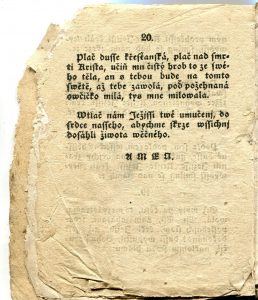 20.
Plač dusse křesťanská, plač nad smr-
ti Krista, učiň mu čistý hrob to ze swé-
ho těla, an s tebou bude na tomto
swětě, až tebe zawolá, pod požehnaná
owčičko milá, tys mne milowala.
Wtlač nám Ježíssi twé umučenj, do
srdce nasseho, abychme skrze wssichnj
dosáhli života wěčného.
AMEN.